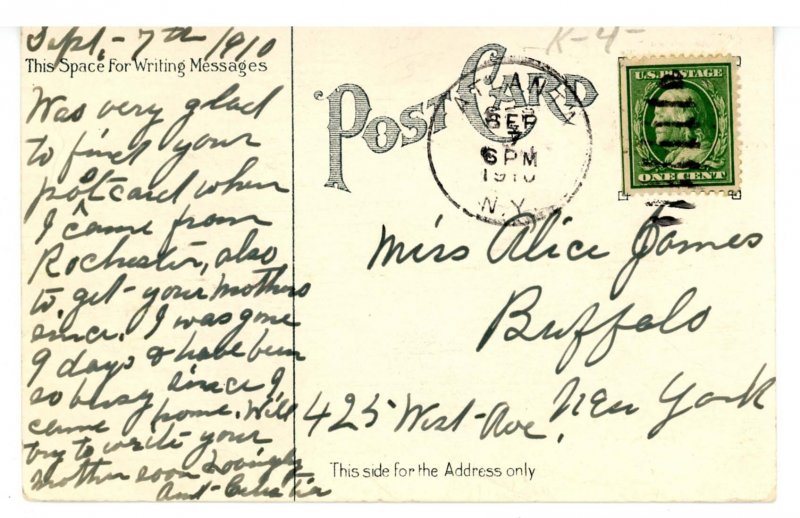 Sept. - 7th 1910
This Space for Writing Messages
Was very glad
to find your
postcard when
I came from
Rochester, also
to get your mothers
since. I was gone
9 days & have been
so busy since I
came home. Will
try to write your
mother soon Lovingly
Aunt
POST CARD
K-4-
SEP
7
6 PM
1910
N.Y.
U.S. POSTAGE
ONE CENT
Miss Alice James
Buffalo
New York
425 West Ave,
This side for the Address only